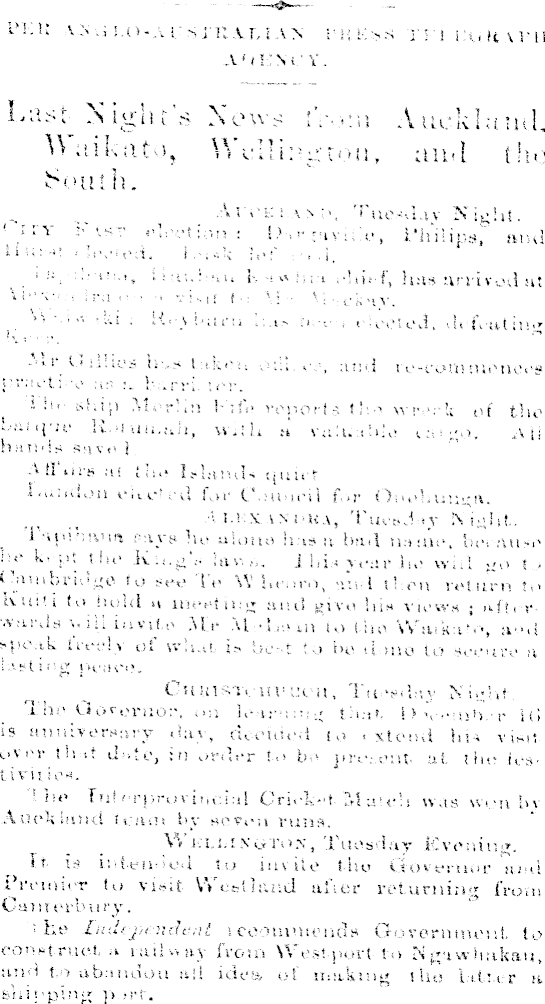 PER ANGLO-AUSTRALIAN PRESS TELEGRAPH
AGENCY.
Last Night's News from Auckland,
Waikato, Wellington, and the
South.
AUCKLAND, Tuesday Night.
CITY EAST election: Dargaville, Philips, and
Hurst elected.
Hauhau Kawhia chief, has arrived at
Alexandra on a visit to Mr Mackay.
Reyburn has been elected, defeating
Mr Gillies has taken offices, and re-commences
practice as a barrister.
The ship Merlin Fife reports the wreck of the
barque Rotumah, with a valuable cargo. All
hands saved
Affairs at the Islands quiet
elected for Council for Onehunga.
ALEXANDRA, Tuesday Night.
Tapihana says he alone has a bad name, because
he kept the King's laws. This year he will go to
Cambridge to see Te Wheoro, and then return to
Kuiti to hold a meeting and give his views; after-
wards will invite Mr McLean to the Waikato, and
speak freely of what is best to be done to secure a
lasting peace.
CHRISTCHURCH, Tuesday Night.
The Governor, on learning that December 16
is anniversary day, decided to extend his visit
over that date, in order to be present at the fes-
tivities.
The Interprovincial Cricket Match was won by
Auckland team by seven runs.
WELLINGTON, Tuesday Evening.
It is intended to invite the Governor and
Premier to visit Westland after returning from
Canterbury.
The Independent recommends Government to
construct a railway from Westport to Ngawhakau,
and to abandon all idea of making the latter a
shipping port.